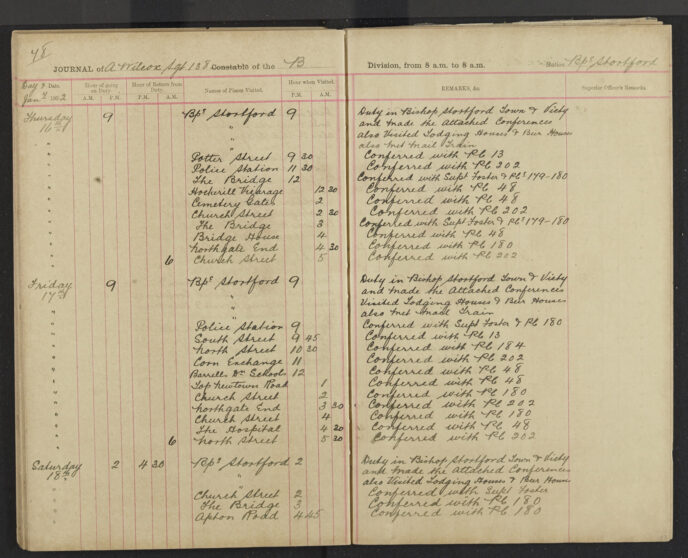 78
JOURNAL of A Wilcox Sgt 138 Constable of the B Division, from 8 a.m. to 8 a.m. Station Bps Stortford
Day & Date. Hour of going on Duty. Hour of Return from Duty. Names of Places Visited. Hour when Visited. REMARKS, &c. Superior Officer's Remarks.
Jany 1902 A.M. P.M. A.M. P.M. P.M. A.M.
Thursday 9 Bps Stortford 9 Duty in Bishop Stortford Town & Victy
16th " and made the Attached Conferences
" " also Visited Lodging Houses & Bur Houses
" " also Met Mail Train
" Potter Street 9 30 Conferred with Pc 13
" Police Station 11 30 Conferred with Pc 202
" The Bridge 12 Conferred with Supt Foster & Pcs 179-180
" Hockerill Vicarage 12 30 Conferred with Pc 48
" Cemetery Gates 2 Conferred with Pc 48
" Church Street 2 30 Conferred with Pc 202
" The Bridge 3 Conferred with Supt Foster & Pcs 179-180
" Bridge House 4 Conferred with Pc 48
" Northgate End 4 30 Conferred with Pc 180
" 6 Church Street 5 Conferred with Pc 202
Friday 9 Bps Stortford 9 Duty in Bishop Stortford Town & Victy
17th " and Made the Attached Conferences
" " Visited Lodging Houses & Bur Houses
" " also Met Mail Train
" Police Station 9 Conferred with Supt Foster & Pc 180
" South Street 9 45 Conferred with Pc 13
" North Street 10 30 Conferred with Pc 184
" Corn Exchange 11 Conferred with Pc 202
" Barrells Dn Schools 12 Conferred with Pc 48
" Top Newtown Road 1 Conferred with Pc 48
" Church Street 2 Conferred with Pc 180
" Northgate End 3 30 Conferred with Pc 202
" Church Street 4 Conferred with Pc 180
" The Hospital 4 20 Conferred with Pc 48
" 6 North Street 5 30 Conferred with Pc 202
Saturday 2 4 30 Bps Stortford 2 Duty in Bishop Stortford Town & Victy
18th " and Made the Attached Conferences
" " also Visited Lodging Houses & Bur Houses
" Church Street 2 Conferred with Supt Foster
" The Bridge 3 Conferred with Pc 180
" Apton Road 4 45 Conferred with Pc 180